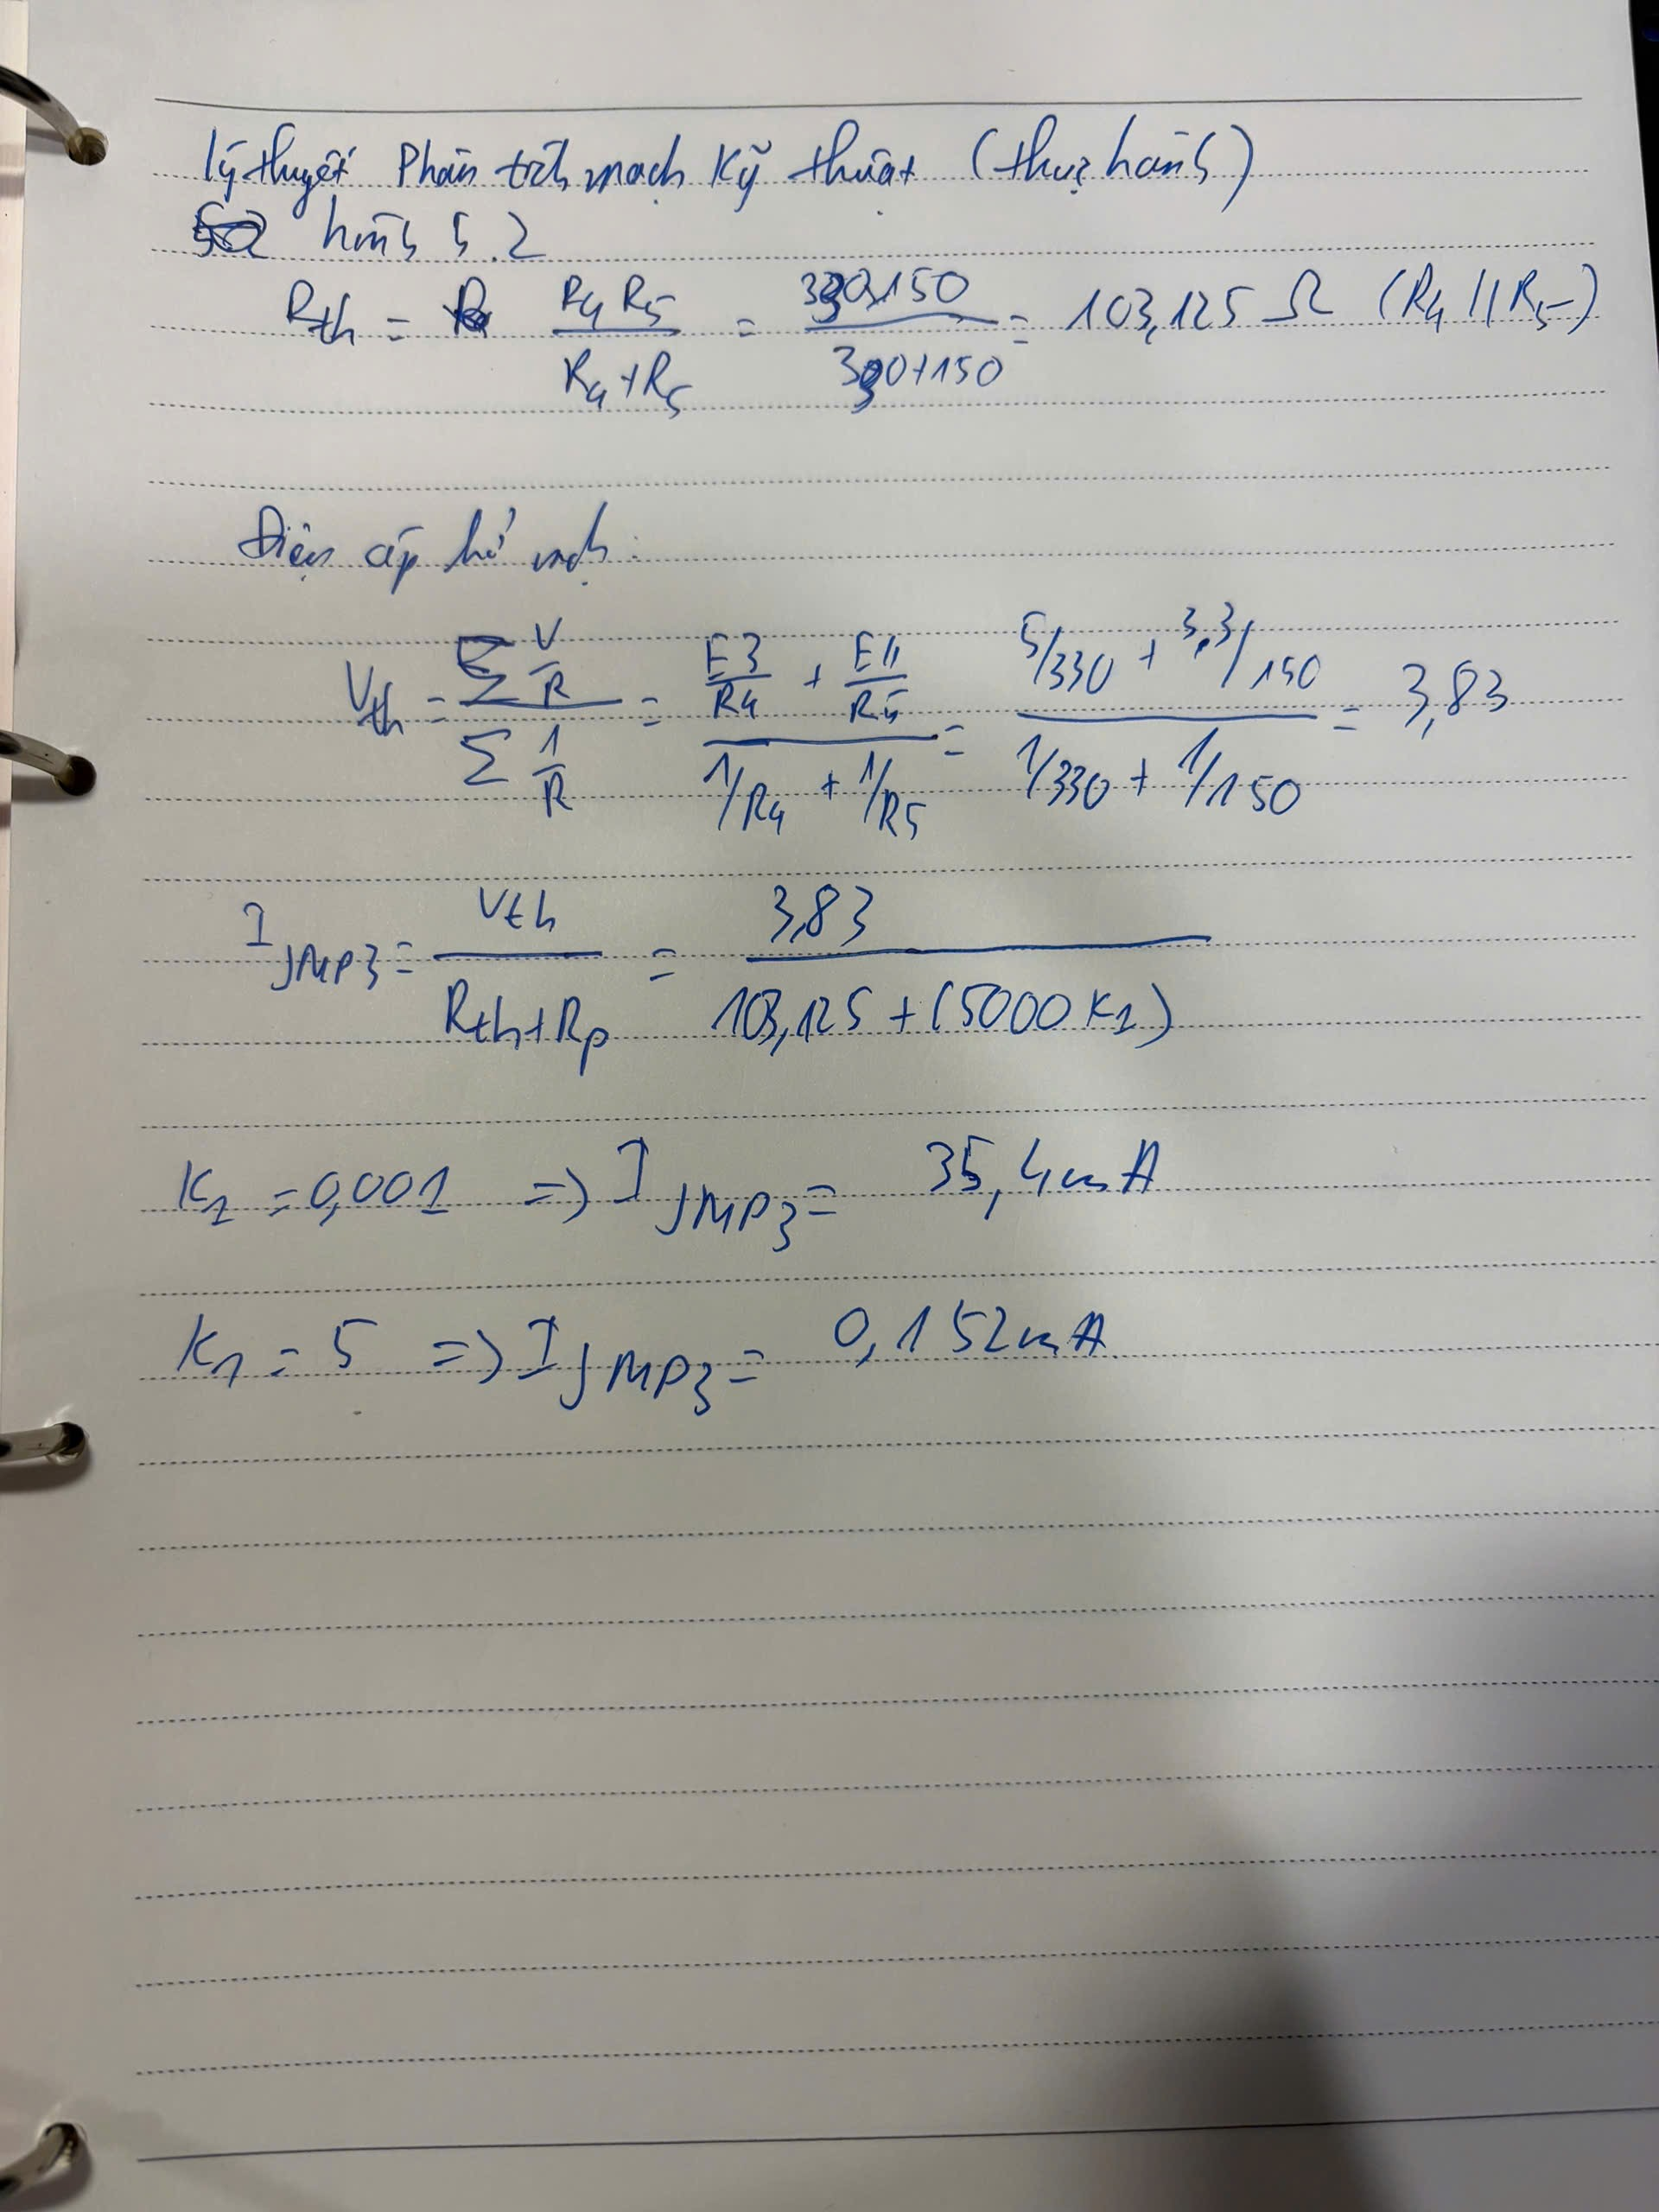 Lý thuyết Phân tích mạch Kỹ thuật (thực hành)
hình 5.2
Rth = R4 R5 / R4 + R5 = 330.150 / 330+150 = 103,125 Ω (R4 // R5)
Điện áp hở mạch:
Vth = Σ V/R / Σ 1/R = E3/R4 + E4/R5 / 1/R4 + 1/R5 = 5/330 + 3.3/150 / 1/330 + 1/150 = 3,83
I JMP3 = Vth / Rth+Rp = 3,83 / 103,125 + (5000 K1)
K1 = 0,001 => I JMP3 = 35,4mA
K1 = 5 => I JMP3 = 0,152mA